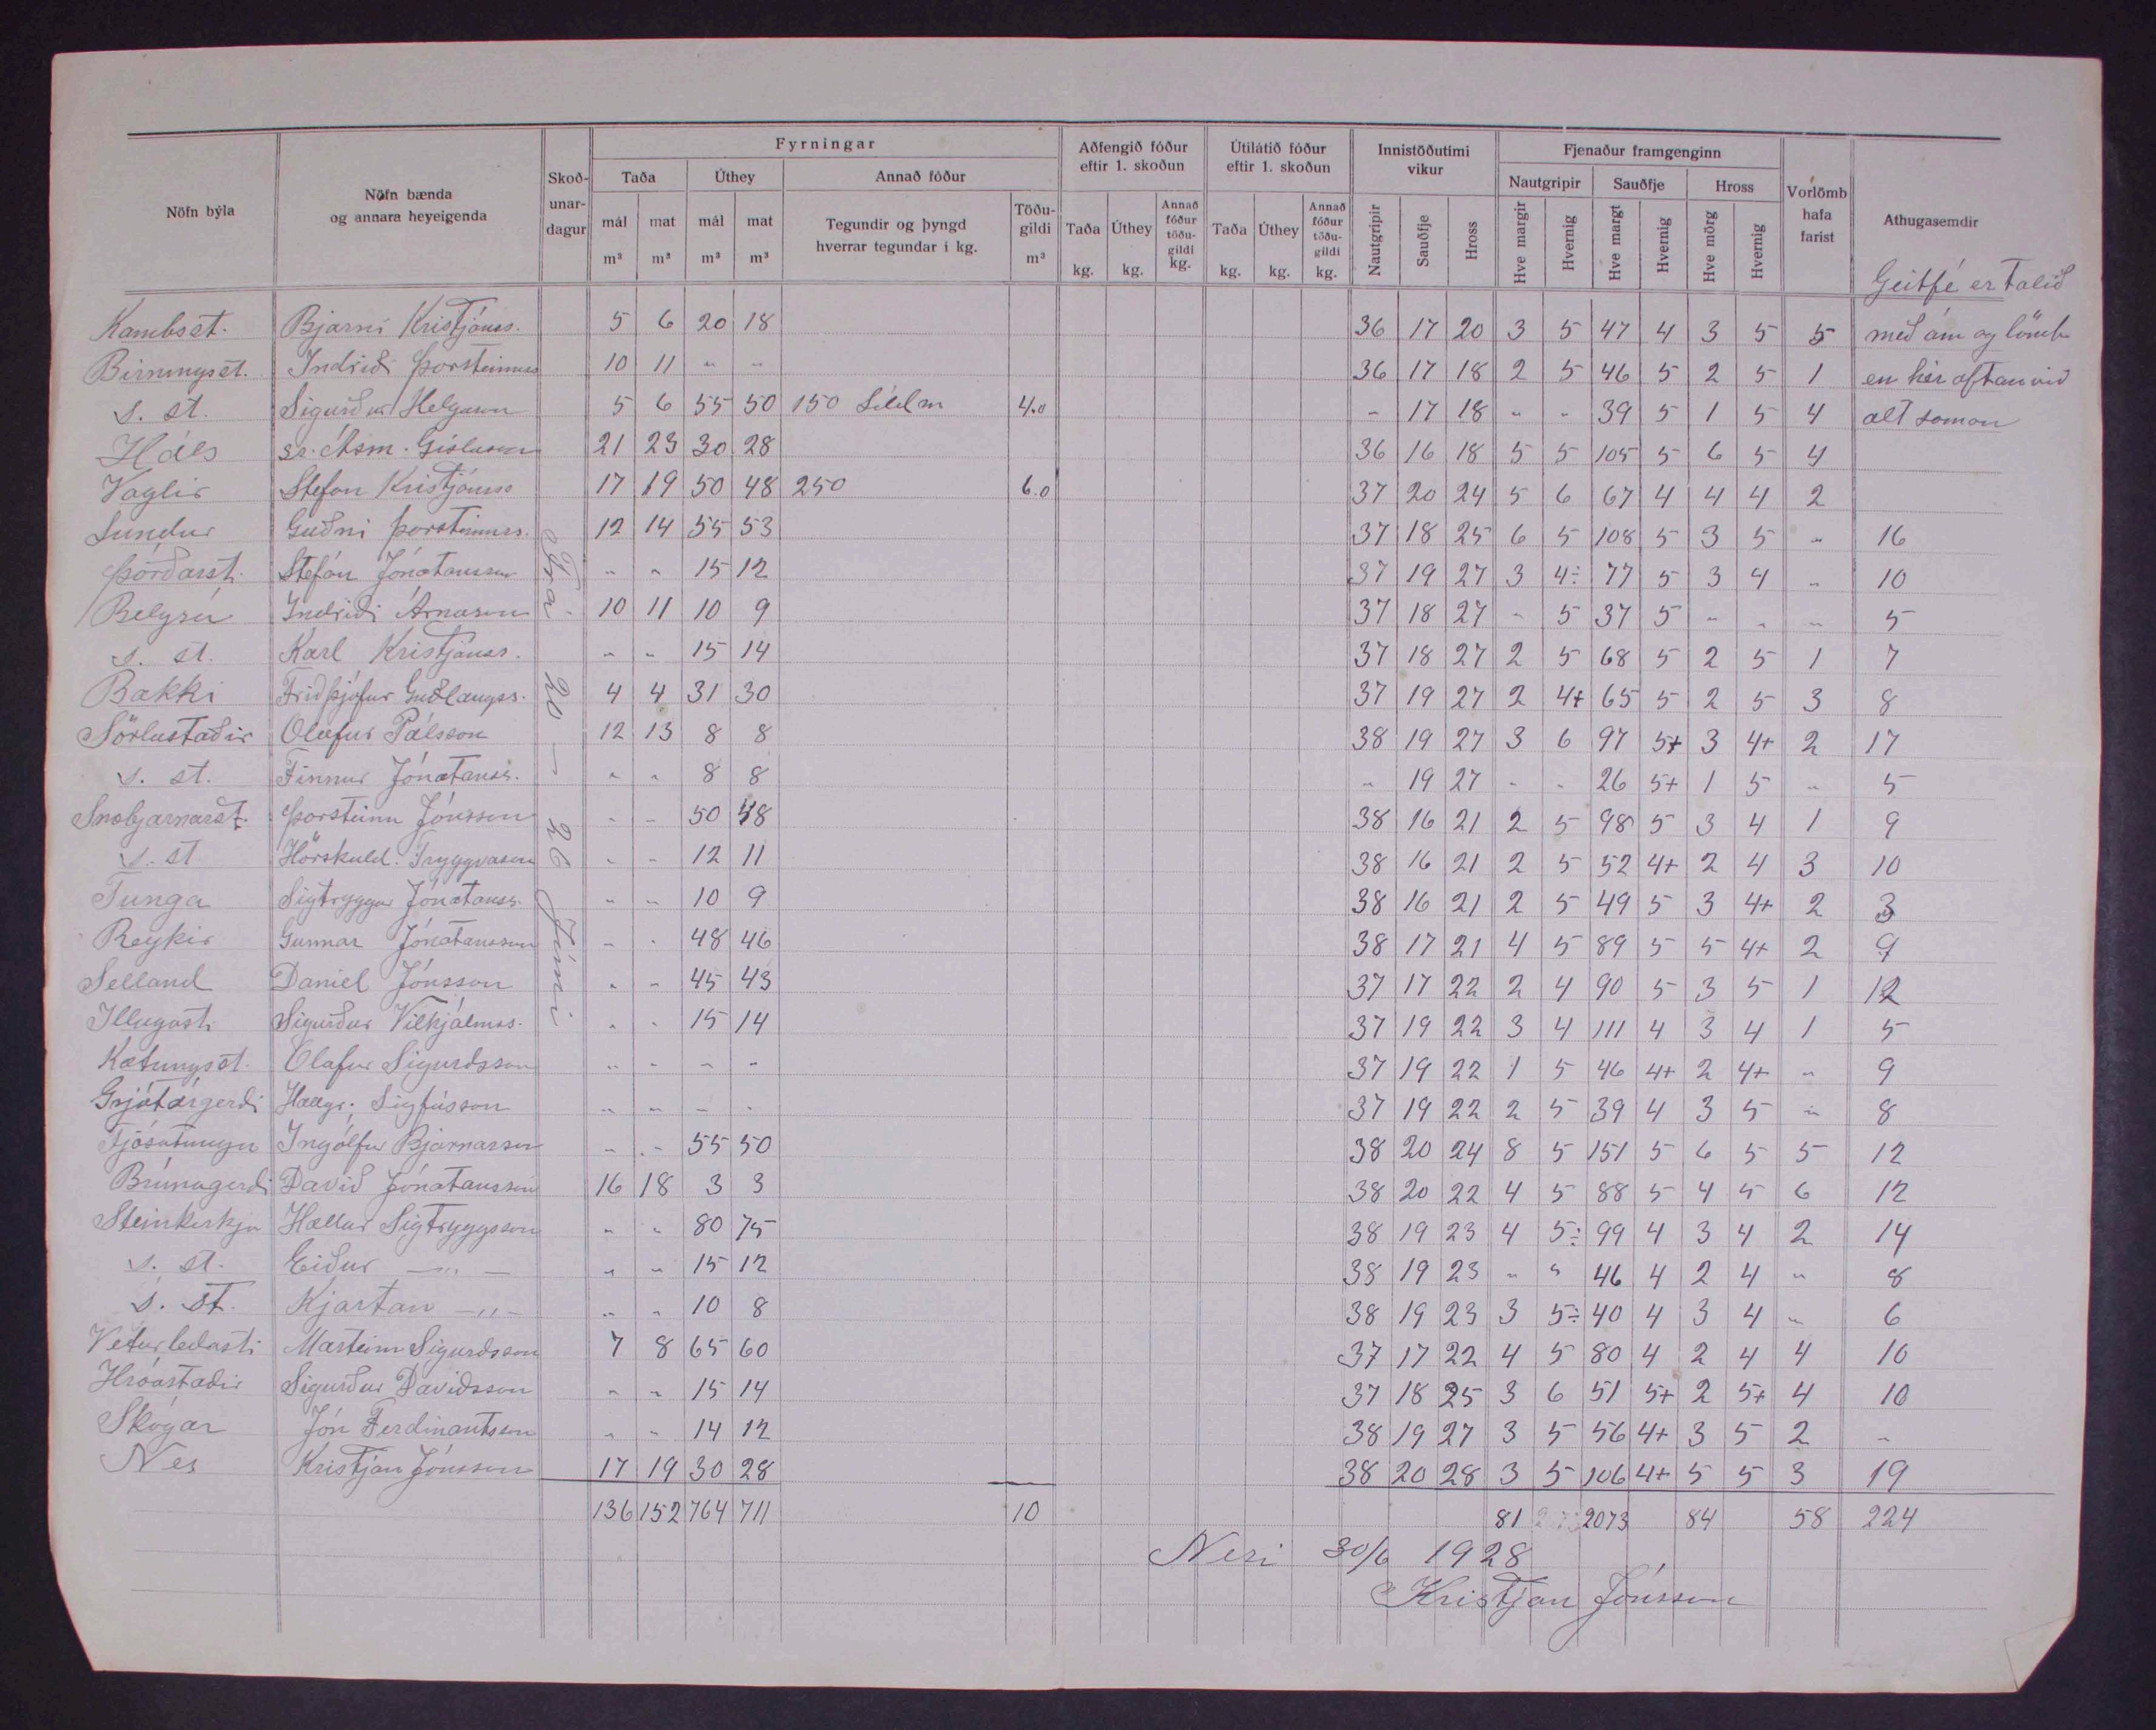 Nöfn býla | Nöfn bænda og annara heyeigenda | Skoðunardagur | Fyrningar | Aðfengið fóður eftir 1. skoðun | Útilátið fóður eftir 1. skoðun | Innistöðutimi vikur | Fjenaður framgenginn | Vorlömb hafa farist | Athugasemdir
Taða | Úthey | Annað fóður | Nautgripir | Sauðfje | Hross
mál m³ | mat m³ | mál m³ | mat m³ | Tegundir og þyngd hverrar tegundar i kg. | Töðugildi m³ | Taða kg. | Úthey kg. | Annað fóður töðugildi kg. | Taða kg. | Úthey kg. | Annað fóður töðugildi kg. | Nautgripir | Sauðfje | Hross | Hve margir | Hvernig | Hve margt | Hvernig | Hve mörg | Hvernig
Geitfé er talið
Kambsst. Bjarni Kristjánss. 5 6 20 18 36 17 20 3 5 47 4 3 5 5 með ám og lömb
Birningsst. Indrið Þorsteinss 10 11 " " 36 17 18 2 5 46 5 2 5 1 en hér aftanvið
s. st. Sigurður Helgason 5 6 55 50 150 Síldm 4.0 " 17 18 " " 39 5 1 5 4 alt saman
Háls sr. Ásm. Gíslason 21 23 30 28 36 16 18 5 5 105 5 6 5 4
Vaglir Stefan Kristjánss 17 19 50 48 250 6.0 37 20 24 5 6 67 4 4 4 2
Lundur Guðni Þorsteinss. 12 14 55 53 37 18 25 6 5 108 5 3 5 " 16
Þórðarst. Stefán Jónatansson " " 15 12 37 19 27 3 4÷ 77 5 3 4 " 10
Belgsá Indriði Árnason 10 11 10 9 37 18 27 " 5 37 5 " " " 5
s. st. Karl Kristjánss. " " 15 14 37 18 27 2 5 68 5 2 5 1 7
Bakki Friðþjófur Guðlaugss. 4 4 31 30 37 19 27 2 4+ 65 5 2 5 3 8
Sörlustaðir Olafur Pálsson 12 13 8 8 38 19 27 3 6 97 5+ 3 4+ 2 17
s. st. Finnur Jónatanss. " " 8 8 " 19 27 " " 26 5+ 1 5 " 5
Snæbjarnarst. Þorsteinn Jónsson " " 50 48 38 16 21 2 5 98 5 3 4 1 9
s. st Höskuld. Tryggvason " " 12 11 38 16 21 2 5 52 4+ 2 4 3 10
Tunga Sigtryggur Jónatanss. " " 10 9 38 16 21 2 5 49 5 3 4+ 2 3
Reykir Gunnar Jónatansson " " 48 46 38 17 21 4 5 89 5 5 4+ 2 9
Selland Daniel Jónsson " " 45 43 37 17 22 2 4 90 5 3 5 1 12
Illugast. Sigurður Vilhjálmss. " " 15 14 37 19 22 3 4 111 4 3 4 1 5
Kotungsst. Olafur Sigurdsson " " " " 37 19 22 1 5 46 4+ 2 4+ " 9
Grjótárgerði Hallgr. Sigfússon " " " " 37 19 22 2 5 39 4 3 5 " 8
Fjósatunga Ingólfur Bjarnarson " " 55 50 38 20 24 8 5 151 5 6 5 5 12
Brúnagerði Davið Jónatansson 16 18 3 3 38 20 22 4 5 88 5 4 5 6 12
Steinkirkja Hallur Sigtryggsson " " 80 75 38 19 23 4 5÷ 99 4 3 4 2 14
s. st. Eiður — " — " " 15 12 38 19 23 " " 46 4 2 4 " 8
s. st. Kjartan — " — " " 10 8 38 19 23 3 5÷ 40 4 3 4 " 6
Veturledast. Marteinn Sigurdsson 7 8 65 60 37 17 22 4 5 80 4 2 4 4 10
Hróastaðir Sigurður Daviðsson " " 15 14 37 18 25 3 6 51 5+ 2 5+ 4 10
Skógar Jón Ferdinantsson " " 14 12 38 19 27 3 5 56 4+ 3 5 2 "
Nes Kristján Jónsson 17 19 30 28 38 20 28 3 5 106 4+ 5 5 3 19
136 152 764 711 10 81 2073 84 58 224
Frá 20 – 26 Júni
Nesi 30/6 1928
Kristján Jónsson